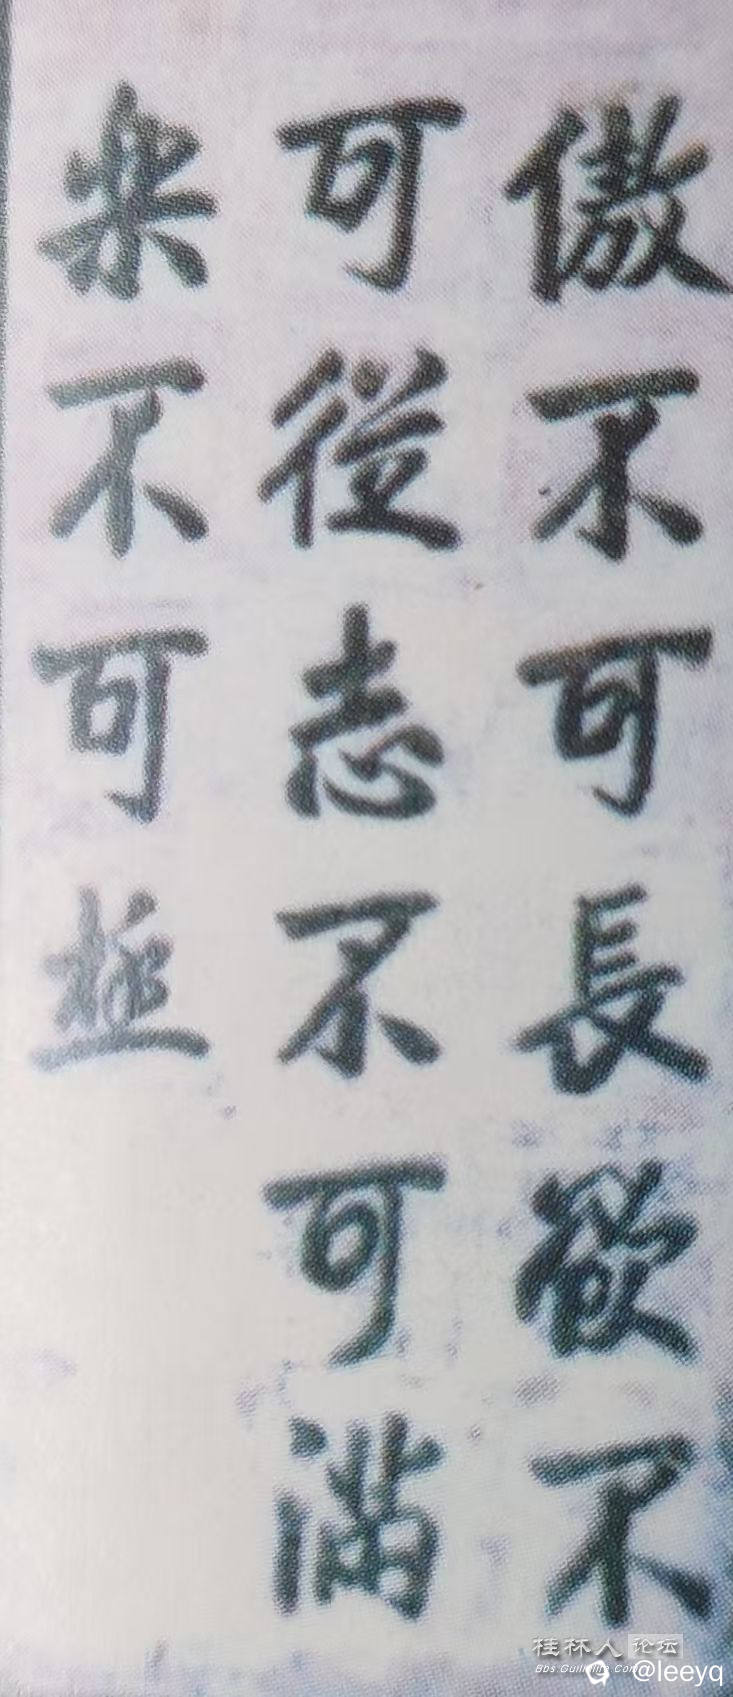 傲不可長欲不
可從志不可滿
樂不可極
桂林人论坛
Bbs.Guilinlife.Com
@leeyq